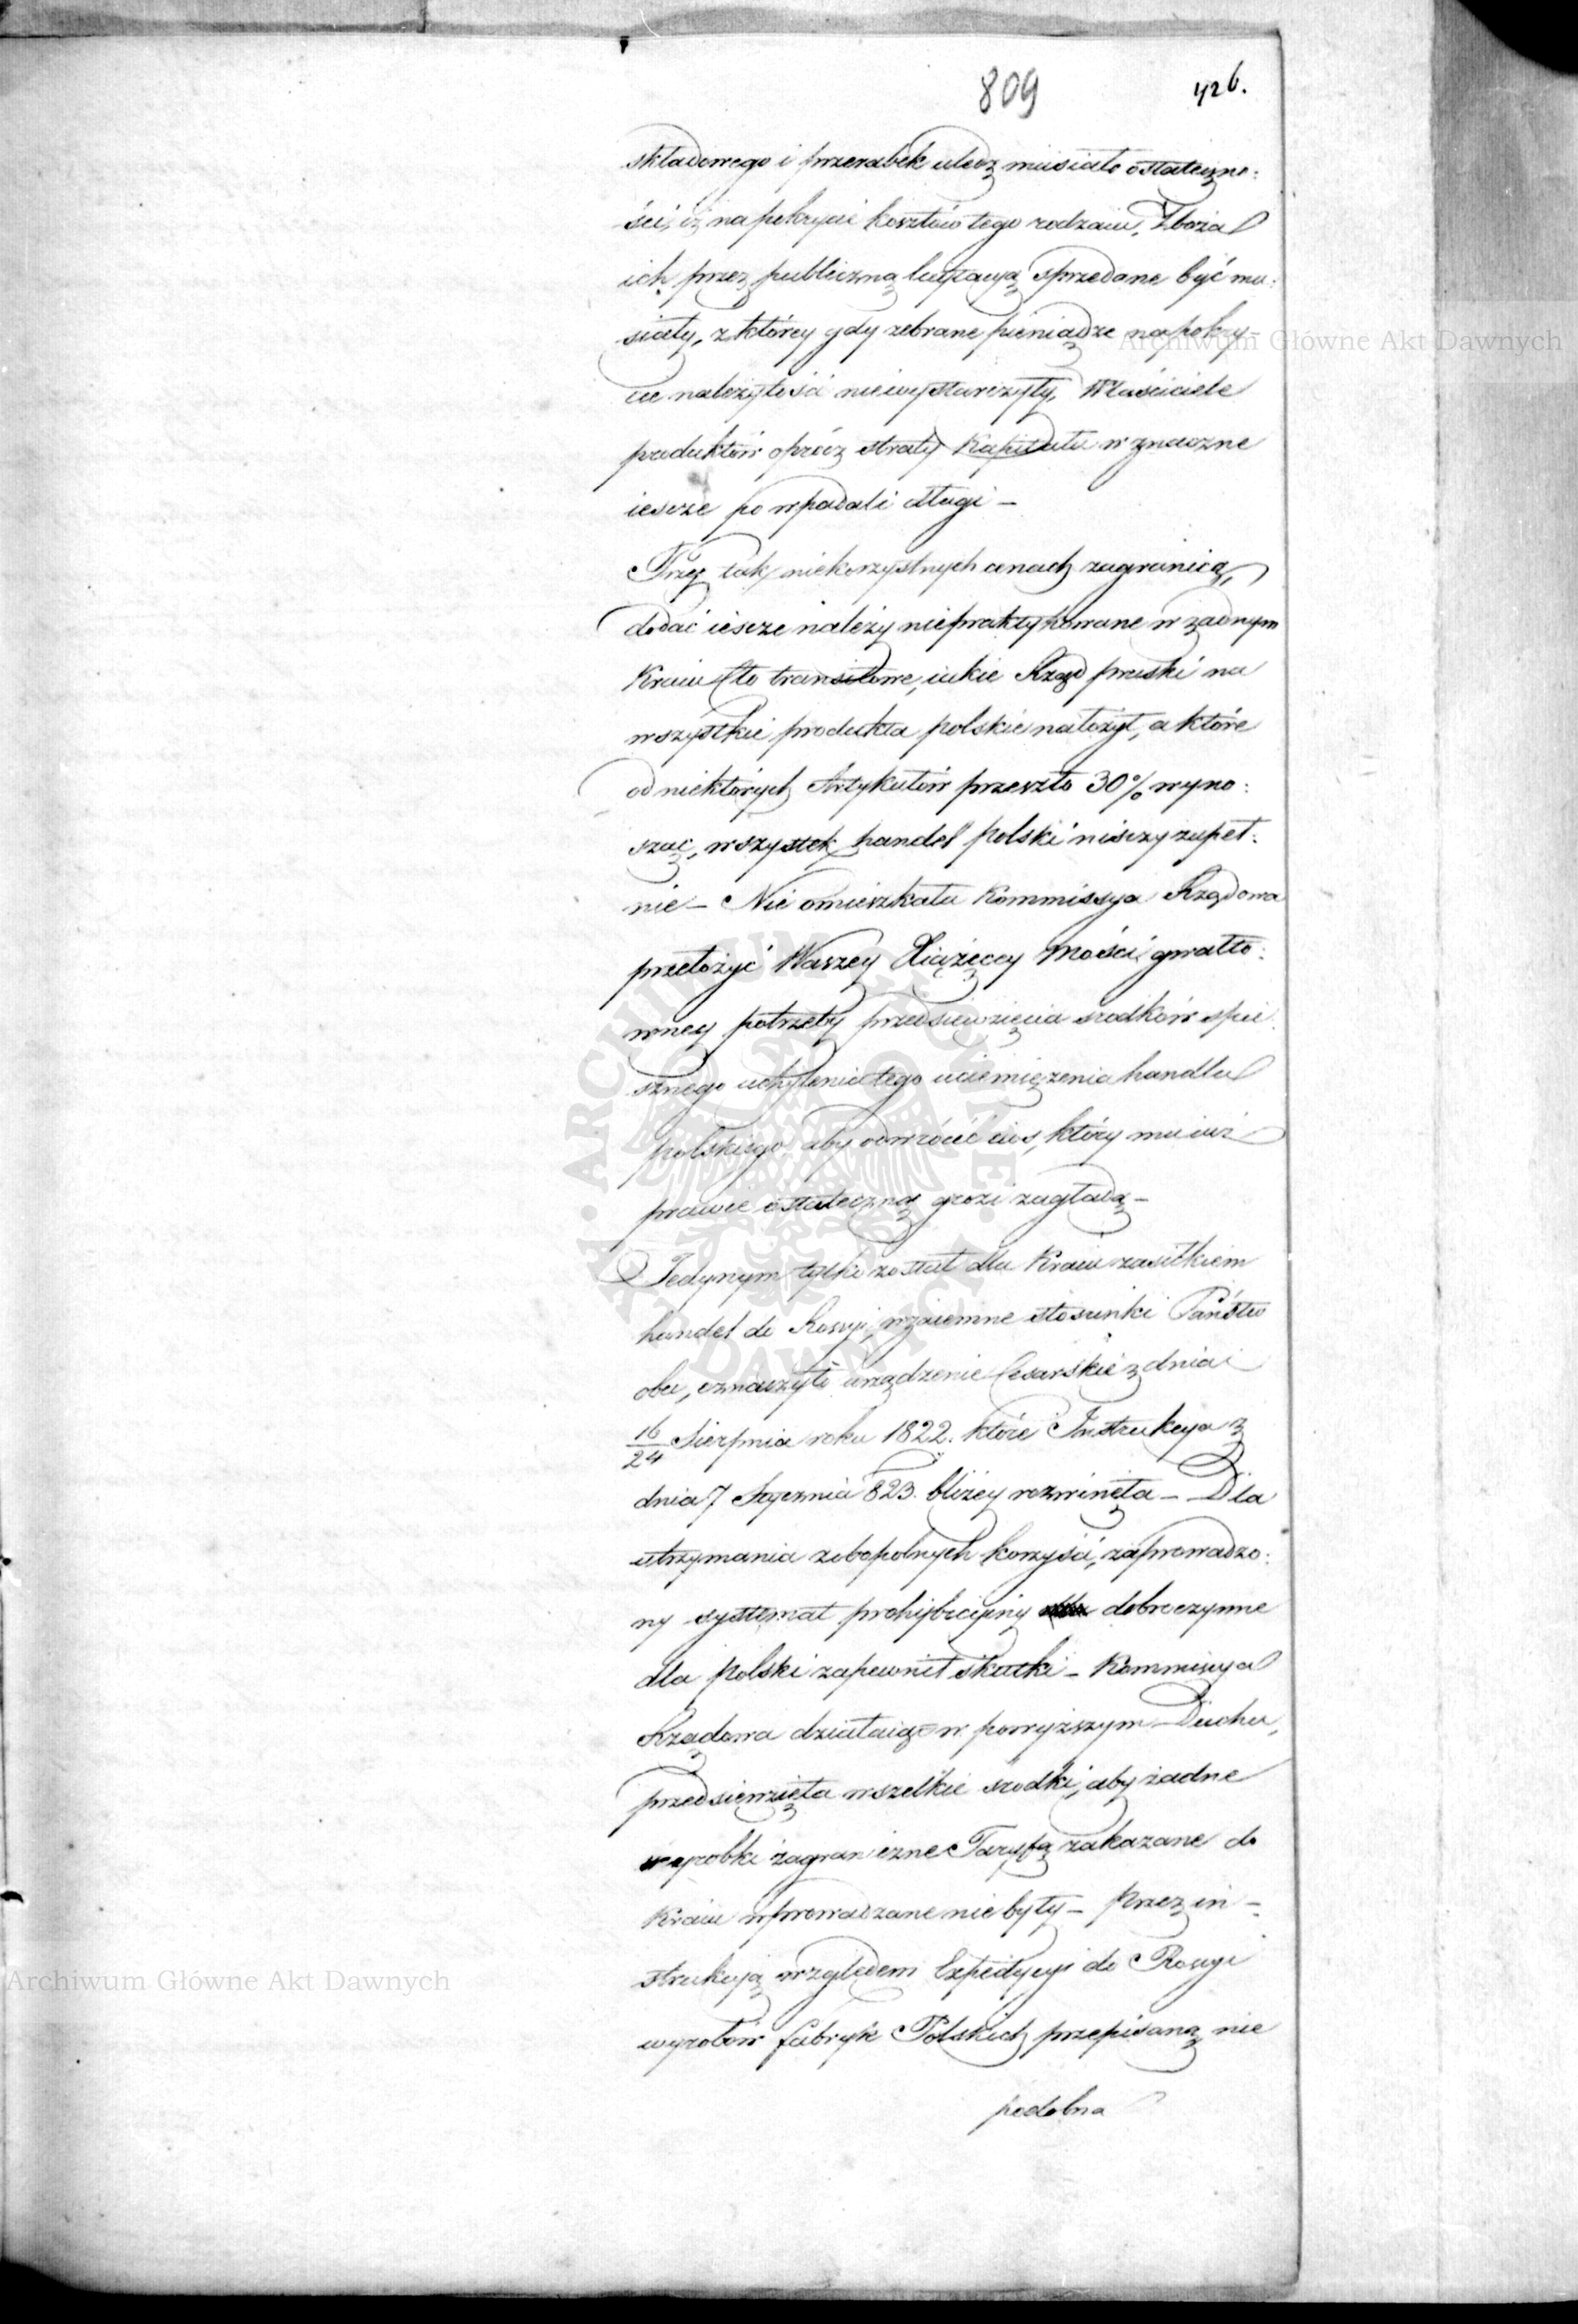 809 426.
składowego i przerabek uledz musiało ostateczno:
ści, iż na pokrycie kosztów tego rodzaiu, Zboża
ich przez publiczną licytacyą sprzedane być mu:
siały, z którey gdy zebrane pieniądze na pokry-
cie należytości niewystarczyły, Właściciele
produktów oprócz straty Kapitału w znaczne
iescze po wpadali długi —
Przy tak niekorzystnych cenach zagranicą,
dodać iescze należy niepraktykowane w żadnym
Kraiu Cło transitowe, iakie Rząd pruski na
wszystkie produkta polskie nałożył, a które
od niektórych Artykułów przeszło 30% wyno:
sząc, wszystek handel polski niszczy zupeł:
nie — Nie omieszkała Kommissya Rządowa
przełożyć Waszey Xiążęcey Mości gwałto:
wney potrzeby przedsięwzięcia srodków spie
sznego uchylenia tego uciemiężenia handlu
polskiego, aby odwrócić cios, który mu iuż
prawie ostateczną grozi zagładą —
Jedynym tylko został dla Kraiu zasiłkiem
handel do Rossyi, wzaiemne stosunki Państw
obu, oznaczyło urządzenie Cesarskie z dnia
16/24 Sierpnia roku 1822. które Instrukcya z
dnia 7 Stycznia 823. bliżey rozwinęła — Dla
utrzymania zobopolnych korzyści, zaprowadzo:
ny systemat prohybicyiny dobroczynne
dla Polski zapewnił skutki — Kommissya
Rządowa działaiąc w powyższym Duchu,
przedsięwzięła wszelkie srodki, aby żadne
wyrobki zagraniczne Taryfą zakazane do
Kraiu wprowadzane nie były — Przez in —
strukcyą względem Expedycyi do Rossyi
wyrobów fabryk Polskich przepisaną nie
podobna
Archiwum Główne Akt Dawnych
Archiwum Główne Akt Dawnych